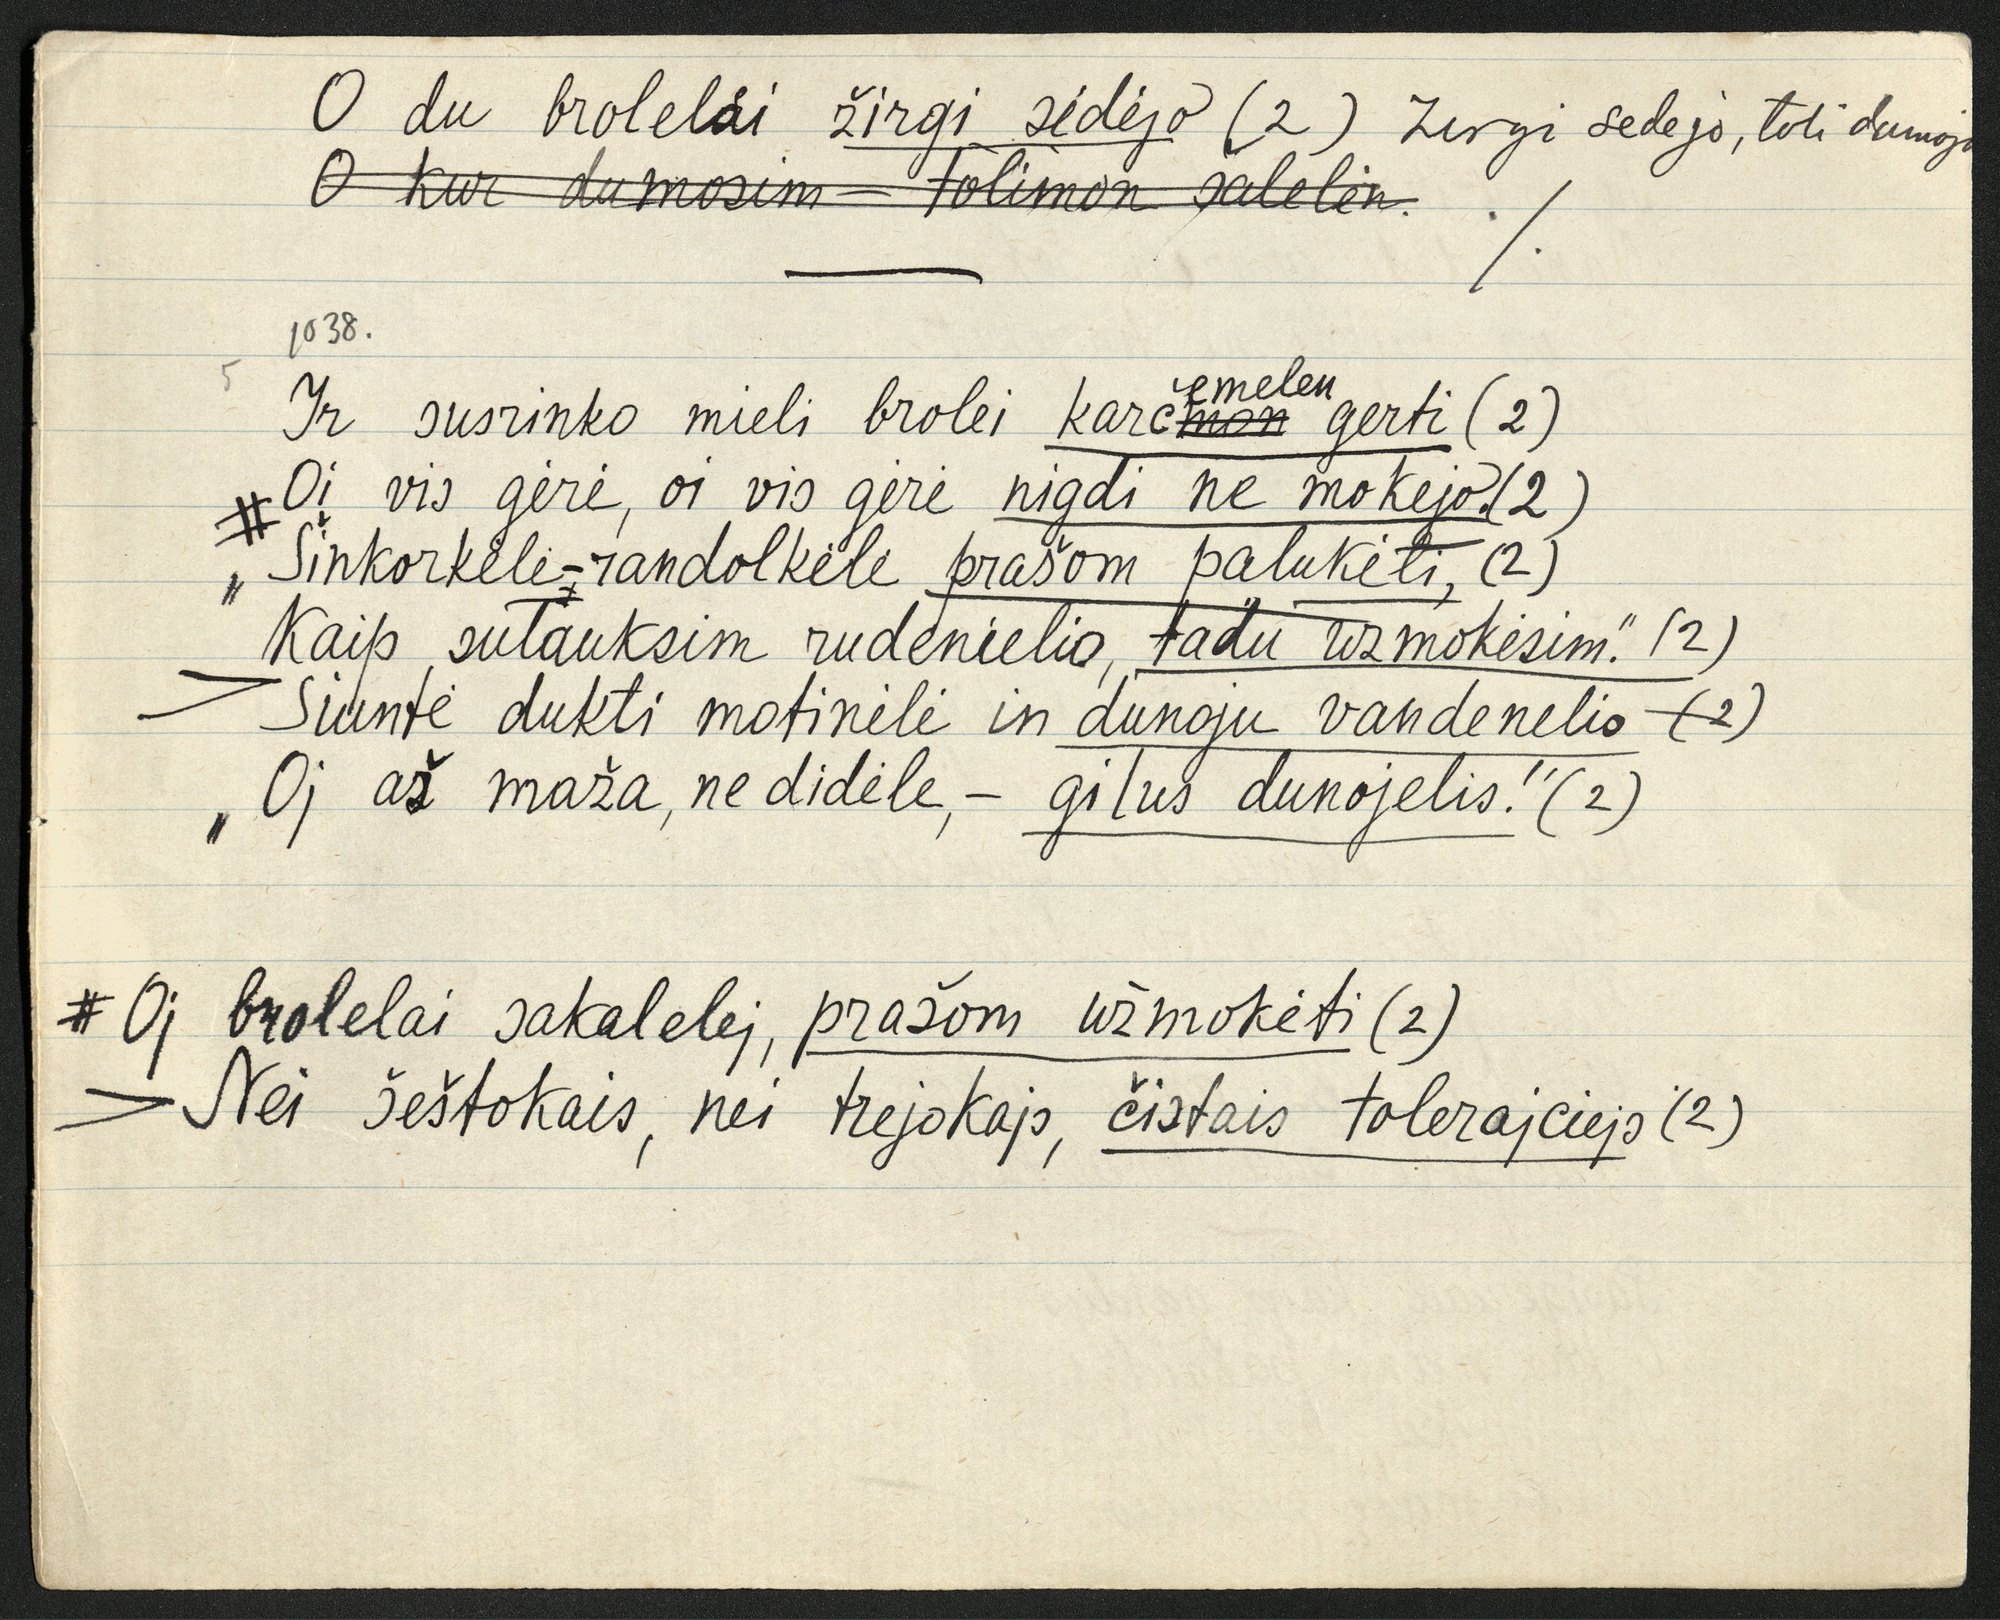 O du brolelai žirgi sėdėjo (2) Zirgi sedejo, toli dumojo
O kur dumosim – tolimon šalelėn. ./.
1038.
5
Ir susrinko mieli brolei karčmon emelen gerti (2)
# Oi vis gėrė, oi vis gėrė nigdi ne mokėjo. (2)
„Šinkorkėlė-randolkėle prašom palukėti, (2)
Kaip sutauksim rudenielio, tadu užmokėsim." (2)
> Siuntė dukti motinėlė in dunoju vandenelio (2)
„Oj aš maža, ne didėle, – gilus dunojelis!" (2)
# Oj brolelai sakalelej, prašom užmokėti (2)
> Nei šeštokais, nei trejokajs, čistais tolerajciejs (2)